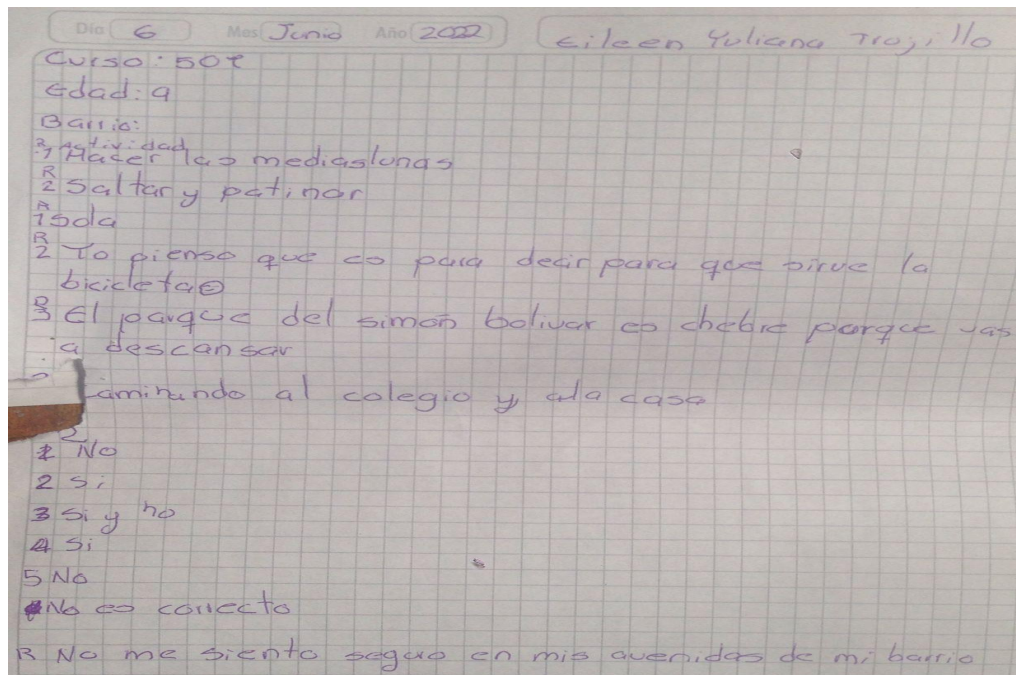 Dia 6 Mes Junio Año 2022 Eileen Yuliana Trojillo
Curso: 502
edad: 9
Barrio:
actividad
R 1 Hacer las mediaslunas
R 2 Saltar y patinar
R 1 Sola
R 2 Yo pienso que es para decir para que sirve la
bicicleta
R 3 El parque del simon bolivar es chebre porque vas
a descansar
caminando al colegio y ala casa
2
1 No
2 Si
3 Si y no
4 Si
5 No
No es correcto
R No me siento seguro en mis avenidas de mi barrio